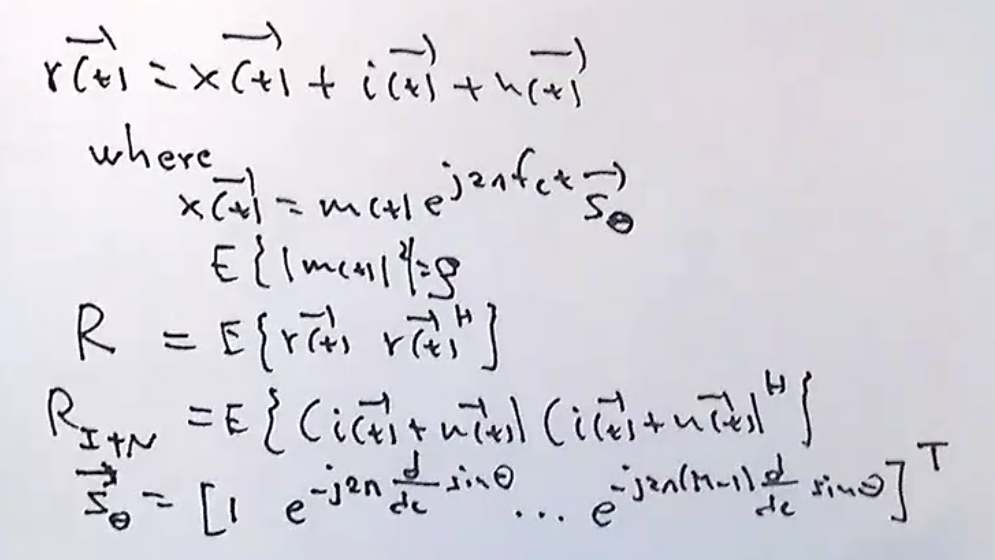 r⃗(t) = x⃗(t) + i⃗(t) + n⃗(t)
where
x⃗(t) = m(t) e^{j2πf_c t} s⃗_θ
E{|m(t)|²} = ρ
R = E{r⃗(t) r⃗(t)^H}
R_{I+N} = E{(i⃗(t) + n⃗(t)) (i⃗(t) + n⃗(t))^H}
s⃗_θ = [1 e^{-j2π \frac{d}{λc} sinθ} ... e^{-j2π(M-1) \frac{d}{λc} sinθ}]^T